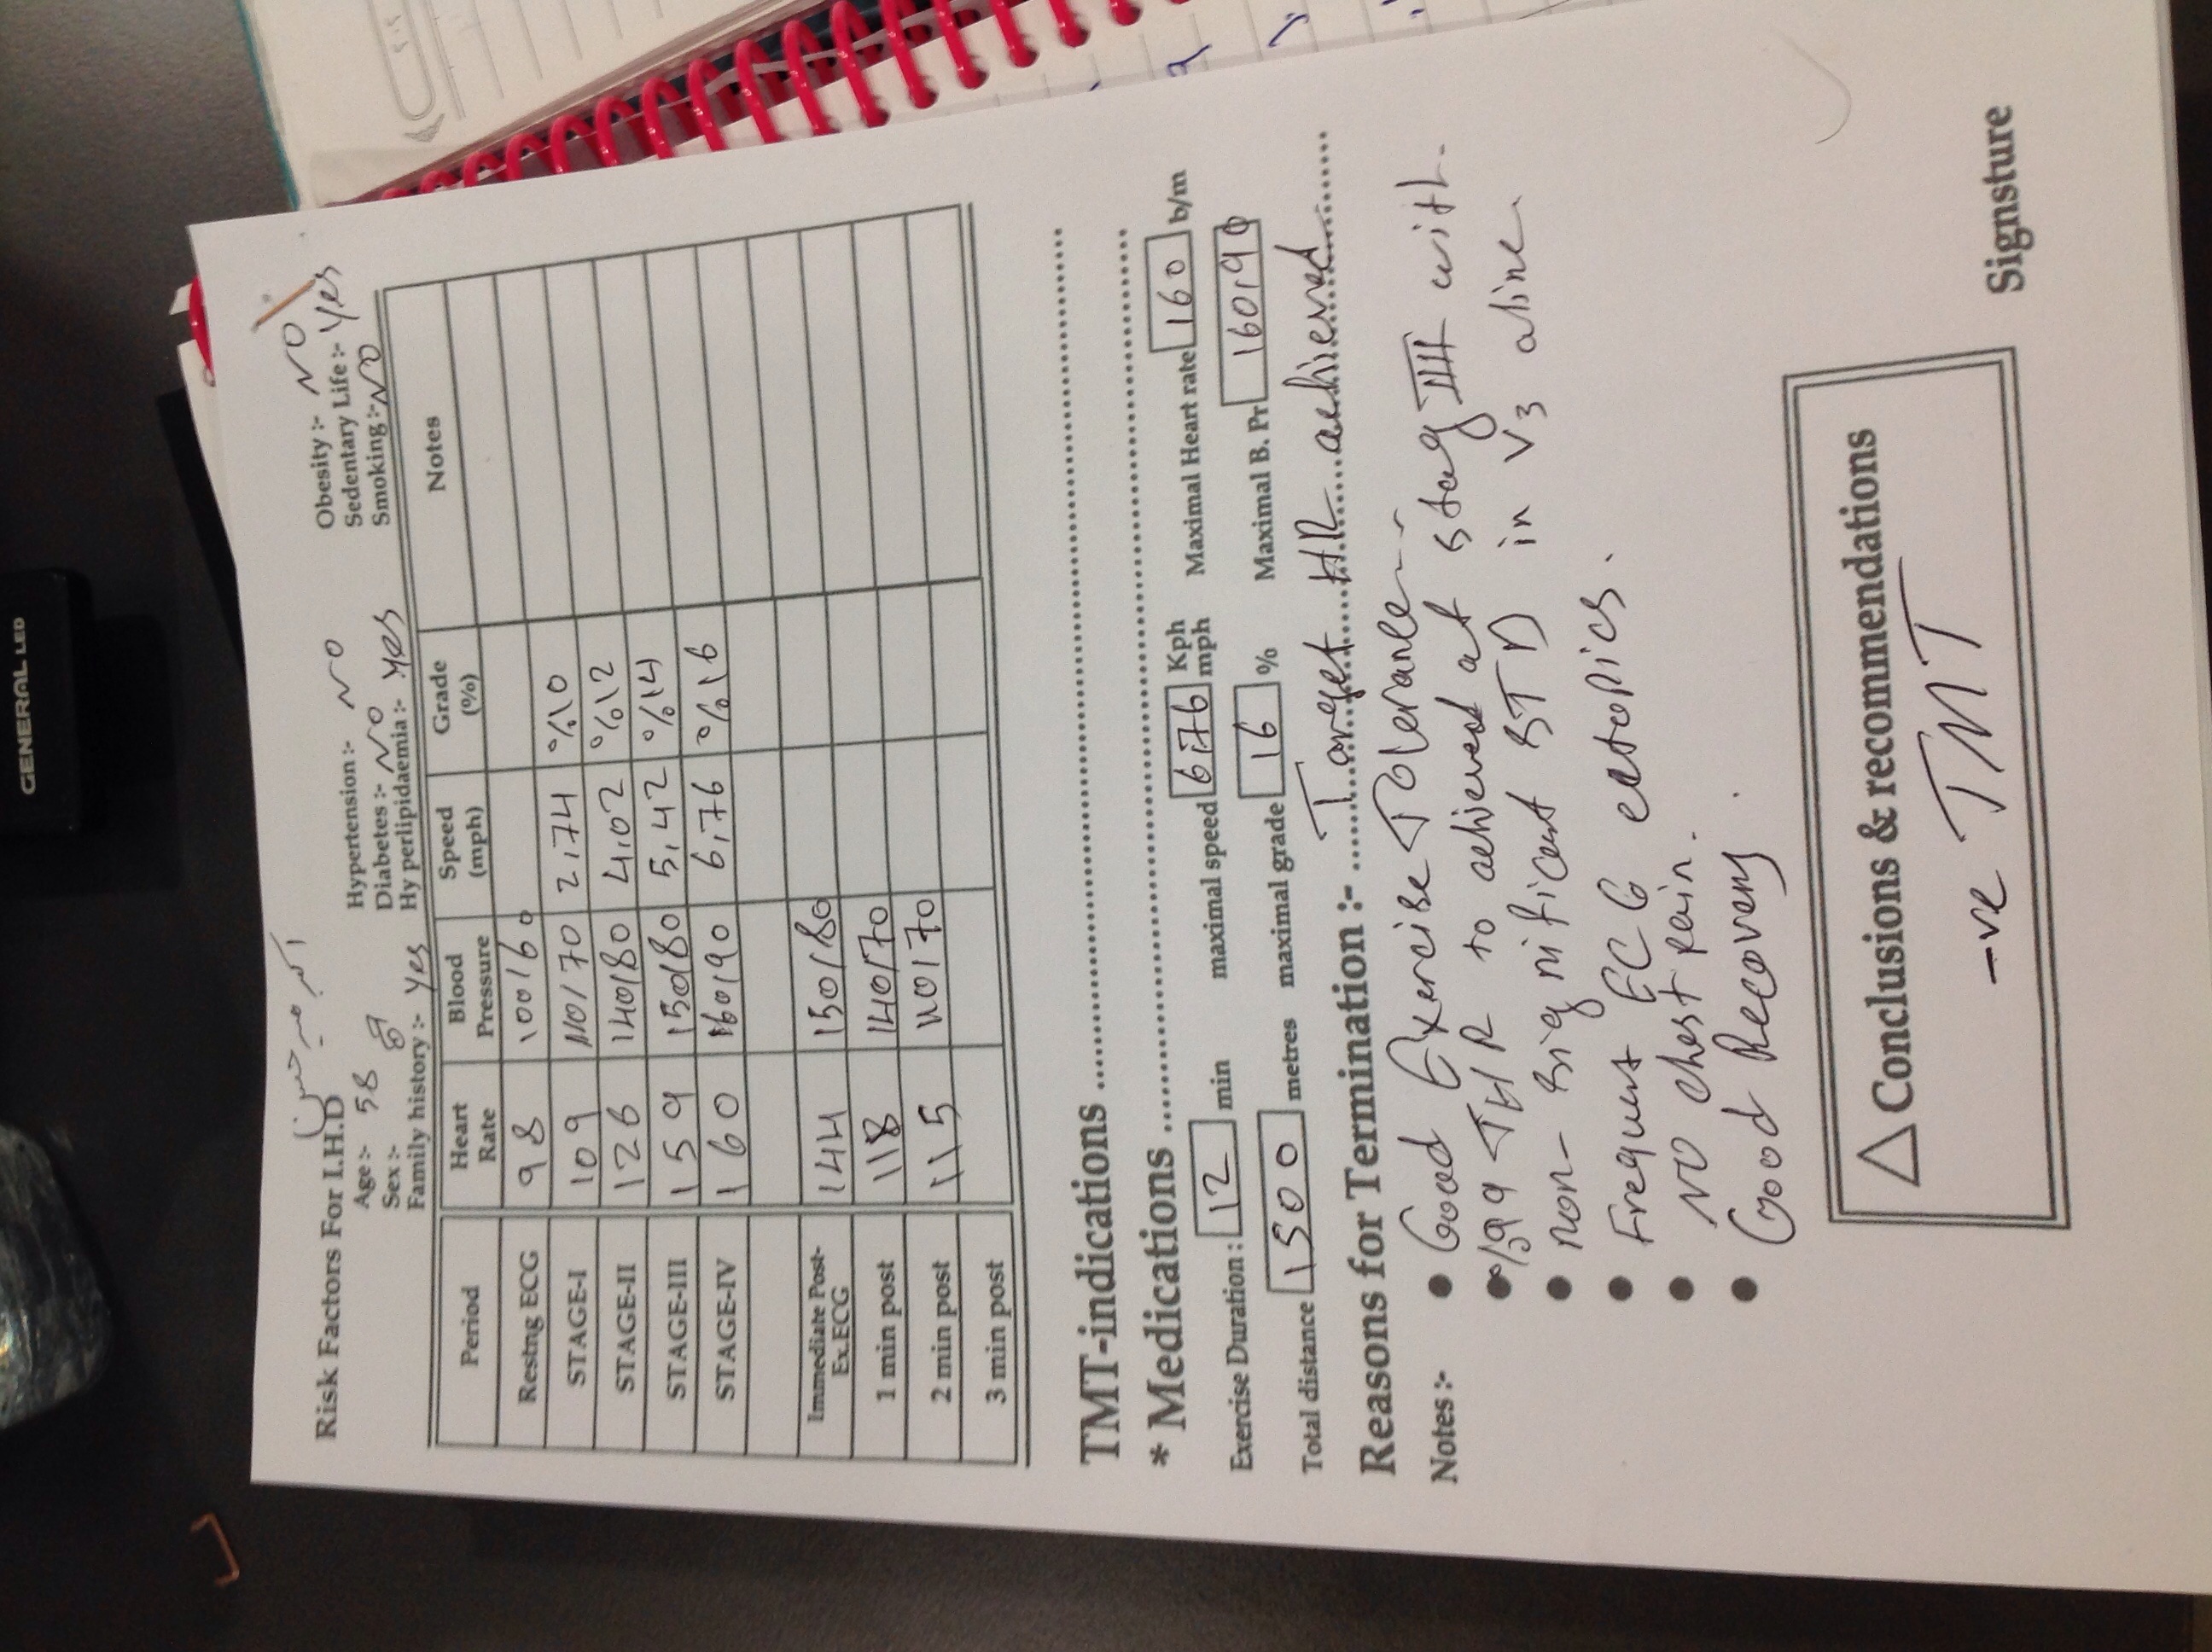 GENERAL LED
Risk Factors For I.H.D
Age:- 58
Sex:-
Family history :- Yes
Hypertension:- NO
Diabetes :- NO
Hyperlipidaemia :- Yes
Obesity :- NO
Sedentary Life :- Yes
Smoking :- NO
Period Heart Rate Blood Pressure Speed (mph) Grade (%) Notes
Restng ECG 98 100/60
STAGE-I 109 110/70 2,74 %10
STAGE-II 126 140/80 4,02 %12
STAGE-III 159 150/80 5,42 %14
STAGE-IV 160 160/90 6,76 %16
Immediate Post-Ex.ECG 144 150/80
1 min post 118 140/70
2 min post 115 110/70
3 min post
TMT-indications
* Medications
Exercise Duration : 12 min maximal speed 6,76 Kph mph Maximal Heart rate 160 b/m
Total distance 1500 metres maximal grade 16 % Maximal B. Pr 160/90
Reasons for Termination :- Target HR achieved
Notes :- • Good Exercise Tolerance
• 99 THR to achieved at stag III with
• non-significant STD in V3 aline
• Frequent ECG ectopics.
• NO chest pain.
• Good Recovery.
Conclusions & recommendations
-ve TMT
Signsture